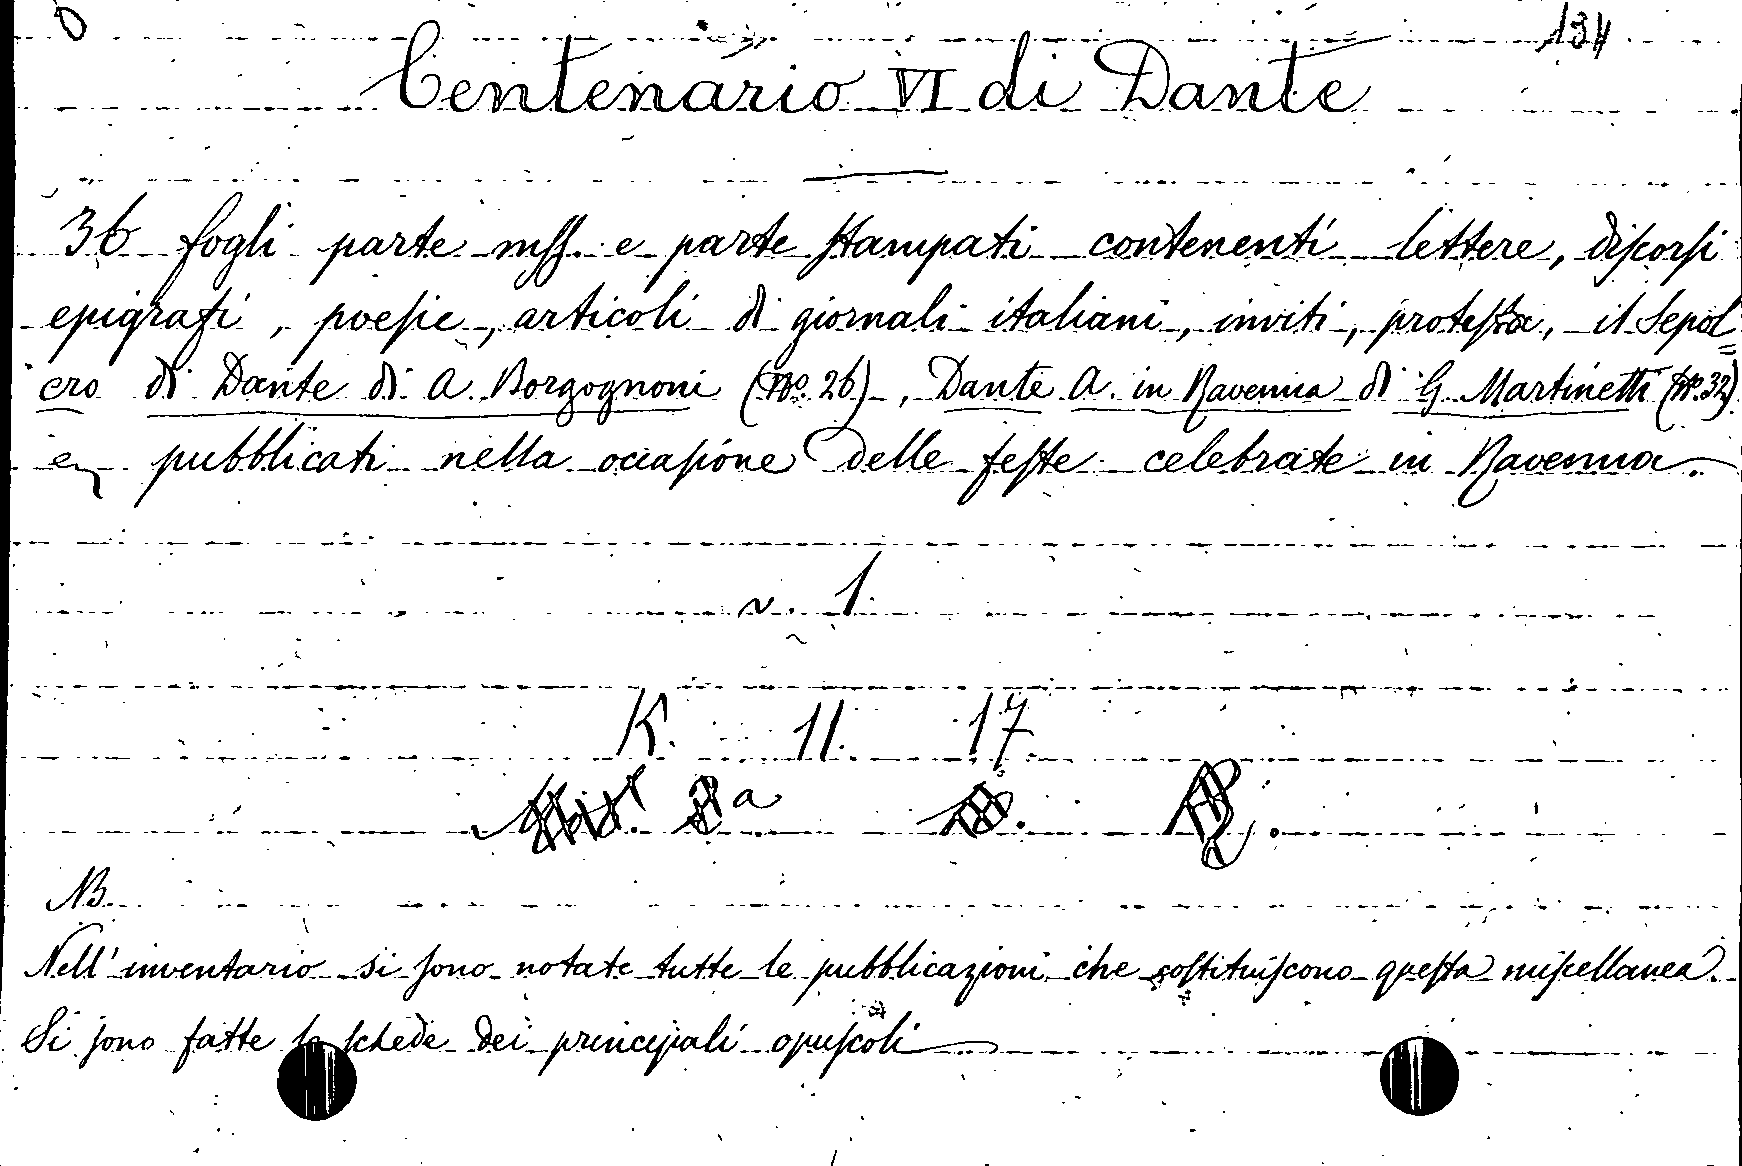 134
Centenario VI di Dante
36 fogli parte mss. e parte stampati contenenti lettere, discorsi
epigrafi, poesie, articoli di giornali italiani, inviti, proteste, il Sepol=
cro di Dante di A. Borgognoni (No. 26), Dante A. in Ravenna di G. Martinetti (No. 32)
pubblicati nella occasione delle feste celebrate in Ravenna.
v. 1
K. 11. 17.
NB.
Nell'inventario si sono notate tutte le pubblicazioni che sostituiscono questa miscellanea.
Si sono fatte le schede dei principali opuscoli